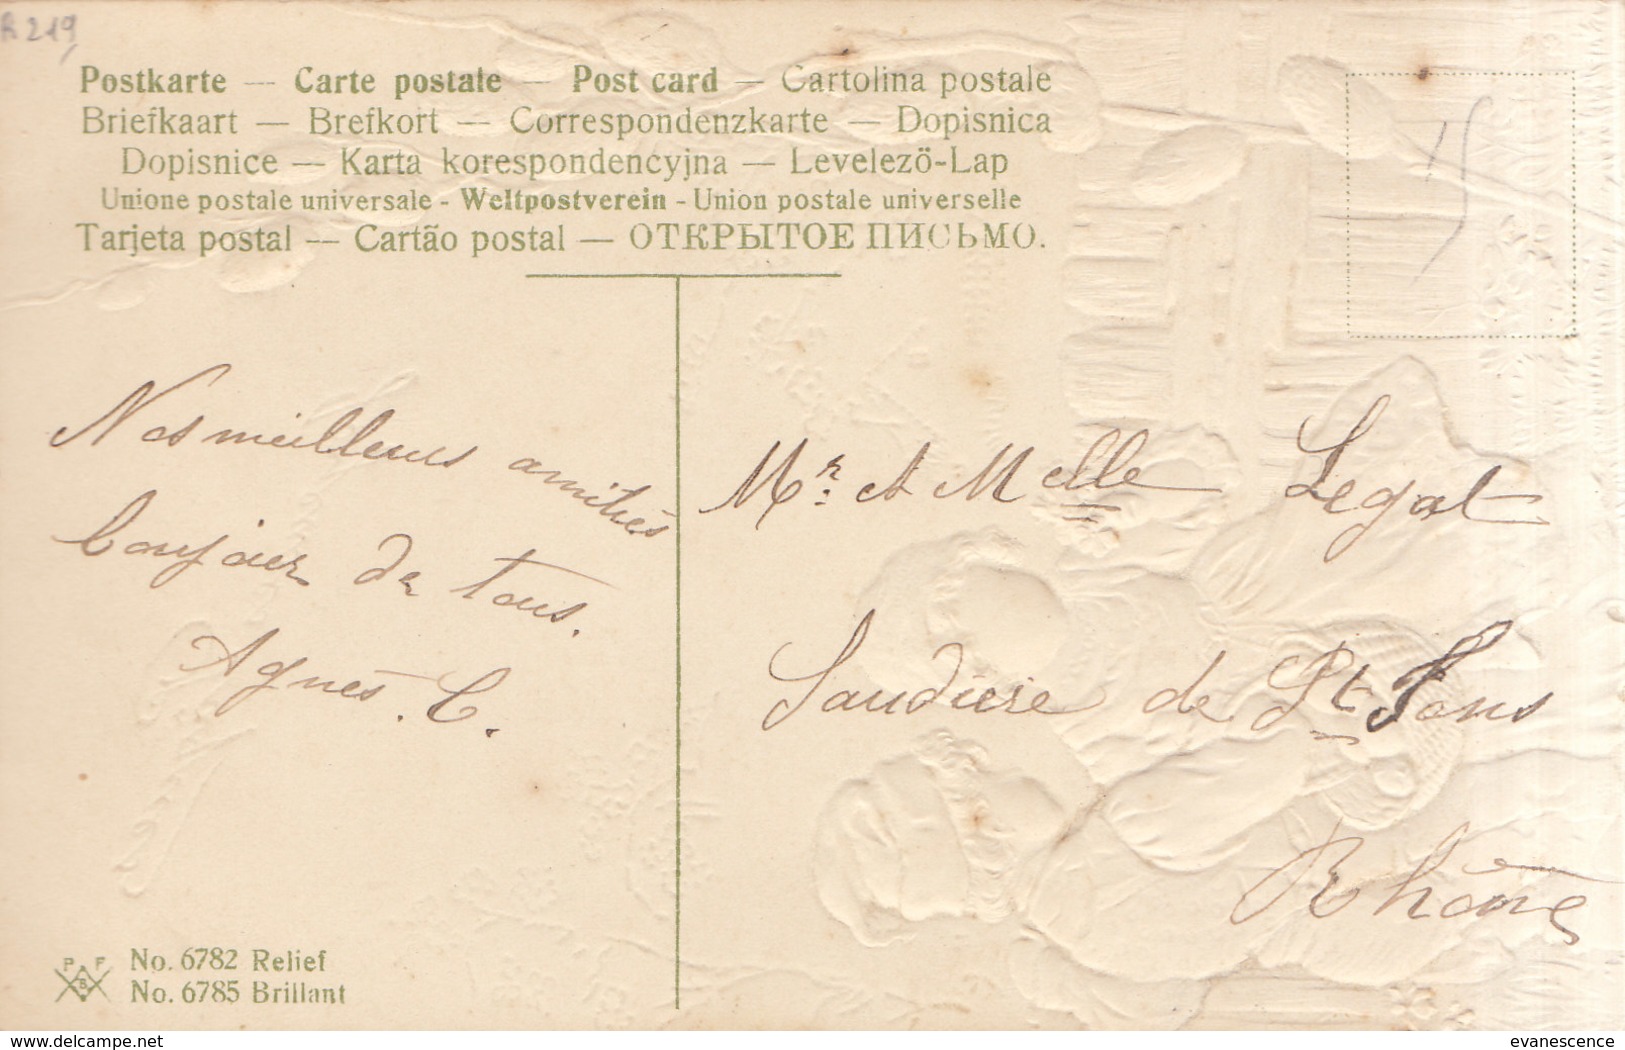 R 219
Postkarte — Carte postale — Post card — Cartolina postale
Briefkaart — Brefkort — Correspondenzkarte — Dopisnica
Dopisnice — Karta korespondencyjna — Levelezö-Lap
Unione postale universale - Weltpostverein - Union postale universelle
Tarjeta postal — Cartão postal — ОТКРЫТОЕ ПИСЬМО.
15
Nos meilleurs amitiés
bonjour de tous.
Agnès. C.
Mr: et Melle Legat
Saudière de St Fons
Rhône
P F
B
No. 6782 Relief
No. 6785 Brillant
delcampe.net
evanescence